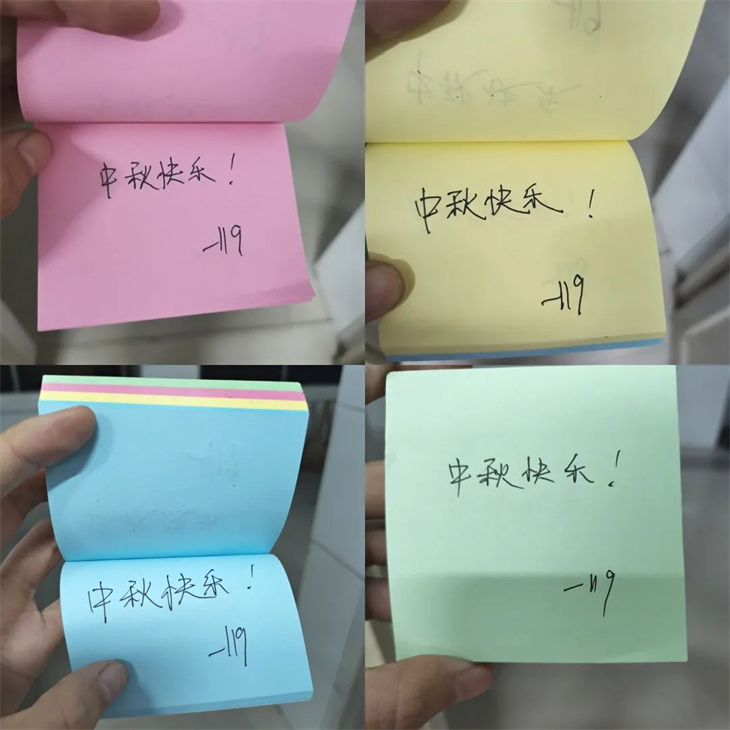 中秋快乐！
-119
中秋快乐！
-119
中秋快乐！
-119
中秋快乐！
-119